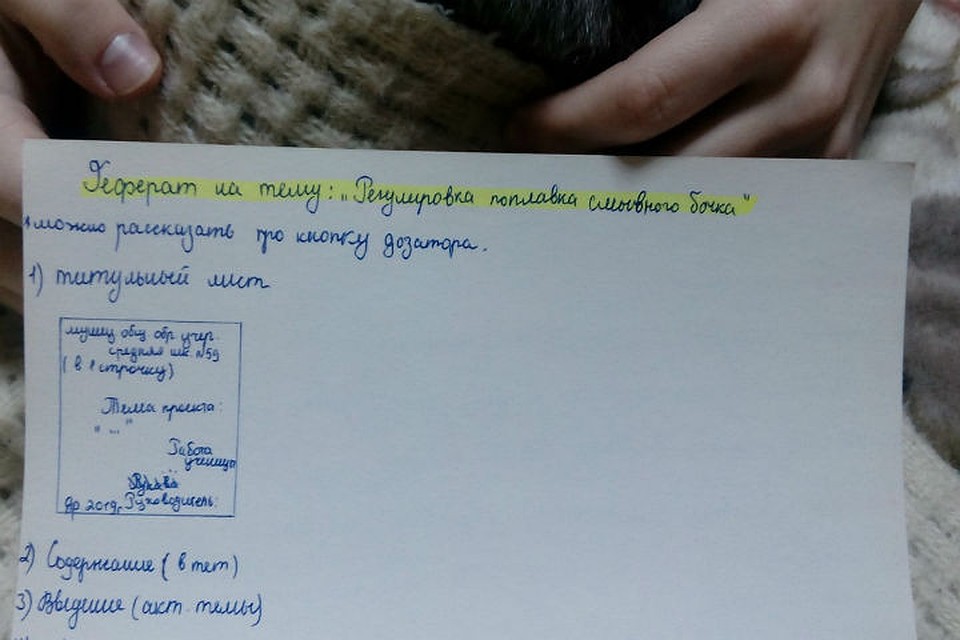 Реферат на тему: „Регулировка поплавка смывного бочка"
можно рассказать про кнопку дозатора.
1) титульный лист
муниц общ обр. учер.
средняя шк. №59
(в 1 строчку)
Тема проекта:
„ ... "
Работа
ученицы
Руководитель:
Яр 2019г.
2) Содержание (в тет)
3) Введение (акт. темы)